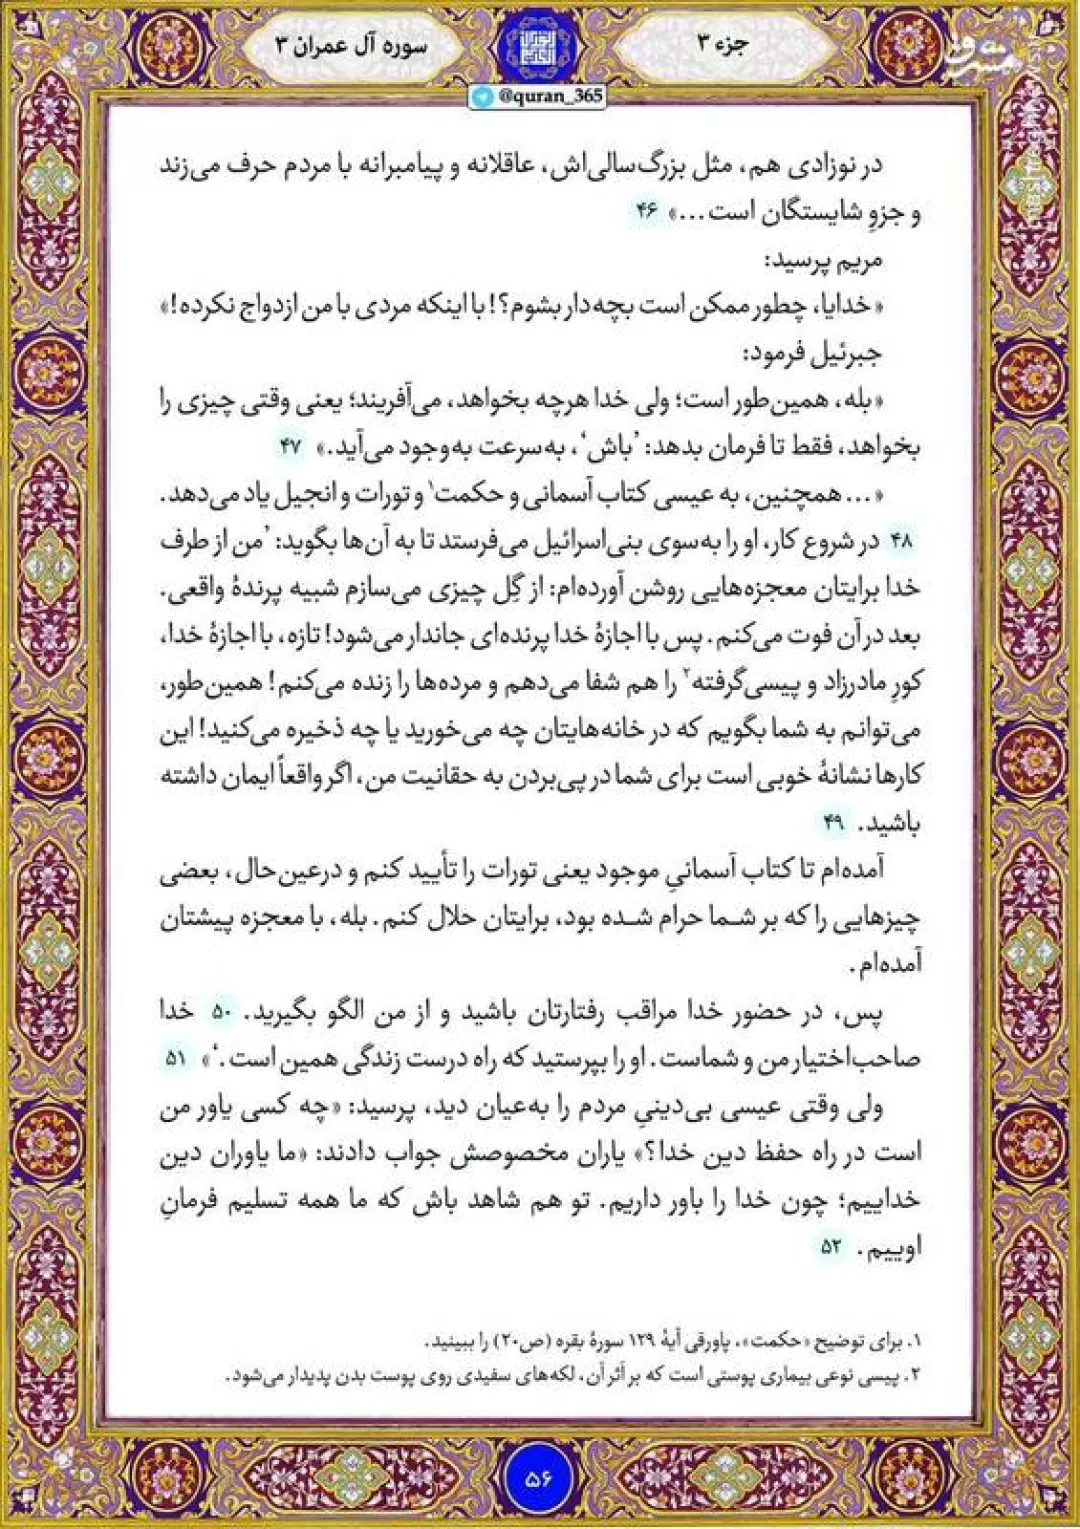 جزء ۳
سوره آل عمران ۳
@quran_365
مشرق
در نوزادی هم، مثل بزرگ‌سالی‌اش، عاقلانه و پیامبرانه با مردم حرف می‌زند
و جزوِ شایستگان است...» ۴۶
مریم پرسید:
«خدایا، چطور ممکن است بچه‌دار بشوم؟! با اینکه مردی با من ازدواج نکرده!»
جبرئیل فرمود:
«بله، همین‌طور است؛ ولی خدا هرچه بخواهد، می‌آفریند؛ یعنی وقتی چیزی را
بخواهد، فقط تا فرمان بدهد: ’باش‘، به‌سرعت به‌وجود می‌آید.» ۴۷
«... همچنین، به عیسی کتاب آسمانی و حکمت۱ و تورات و انجیل یاد می‌دهد.
۴۸ در شروع کار، او را به‌سوی بنی‌اسرائیل می‌فرستد تا به آن‌ها بگوید: ’من از طرف
خدا برایتان معجزه‌هایی روشن آورده‌ام: از گِل چیزی می‌سازم شبیه پرندهٔ واقعی.
بعد در آن فوت می‌کنم. پس با اجازهٔ خدا پرنده‌ای جاندار می‌شود! تازه، با اجازهٔ خدا،
کورِ مادرزاد و پیسی‌گرفته۲ را هم شفا می‌دهم و مرده‌ها را زنده می‌کنم! همین‌طور،
می‌توانم به شما بگویم که در خانه‌هایتان چه می‌خورید یا چه ذخیره می‌کنید! این
کارها نشانهٔ خوبی است برای شما در پی‌بردن به حقانیت من، اگر واقعاً ایمان داشته
باشید. ۴۹
آمده‌ام تا کتاب آسمانیِ موجود یعنی تورات را تأیید کنم و درعین‌حال، بعضی
چیزهایی را که بر شما حرام شده بود، برایتان حلال کنم. بله، با معجزه پیشتان
آمده‌ام.
پس، در حضور خدا مراقب رفتارتان باشید و از من الگو بگیرید. ۵۰ خدا
صاحب‌اختیار من و شماست. او را بپرستید که راه درست زندگی همین است.‘» ۵۱
ولی وقتی عیسی بی‌دینیِ مردم را به‌عیان دید، پرسید: «چه کسی یاور من
است در راه حفظ دین خدا؟» یاران مخصوصش جواب دادند: «ما یاوران دین
خداییم؛ چون خدا را باور داریم. تو هم شاهد باش که ما همه تسلیم فرمانِ
اوییم. ۵۲
۱. برای توضیح «حکمت»، پاورقی آیهٔ ۱۲۹ سورهٔ بقره (ص۲۰) را ببینید.
۲. پیسی نوعی بیماری پوستی است که بر اَثر آن، لکه‌های سفیدی روی پوست بدن پدیدار می‌شود.
۵۶